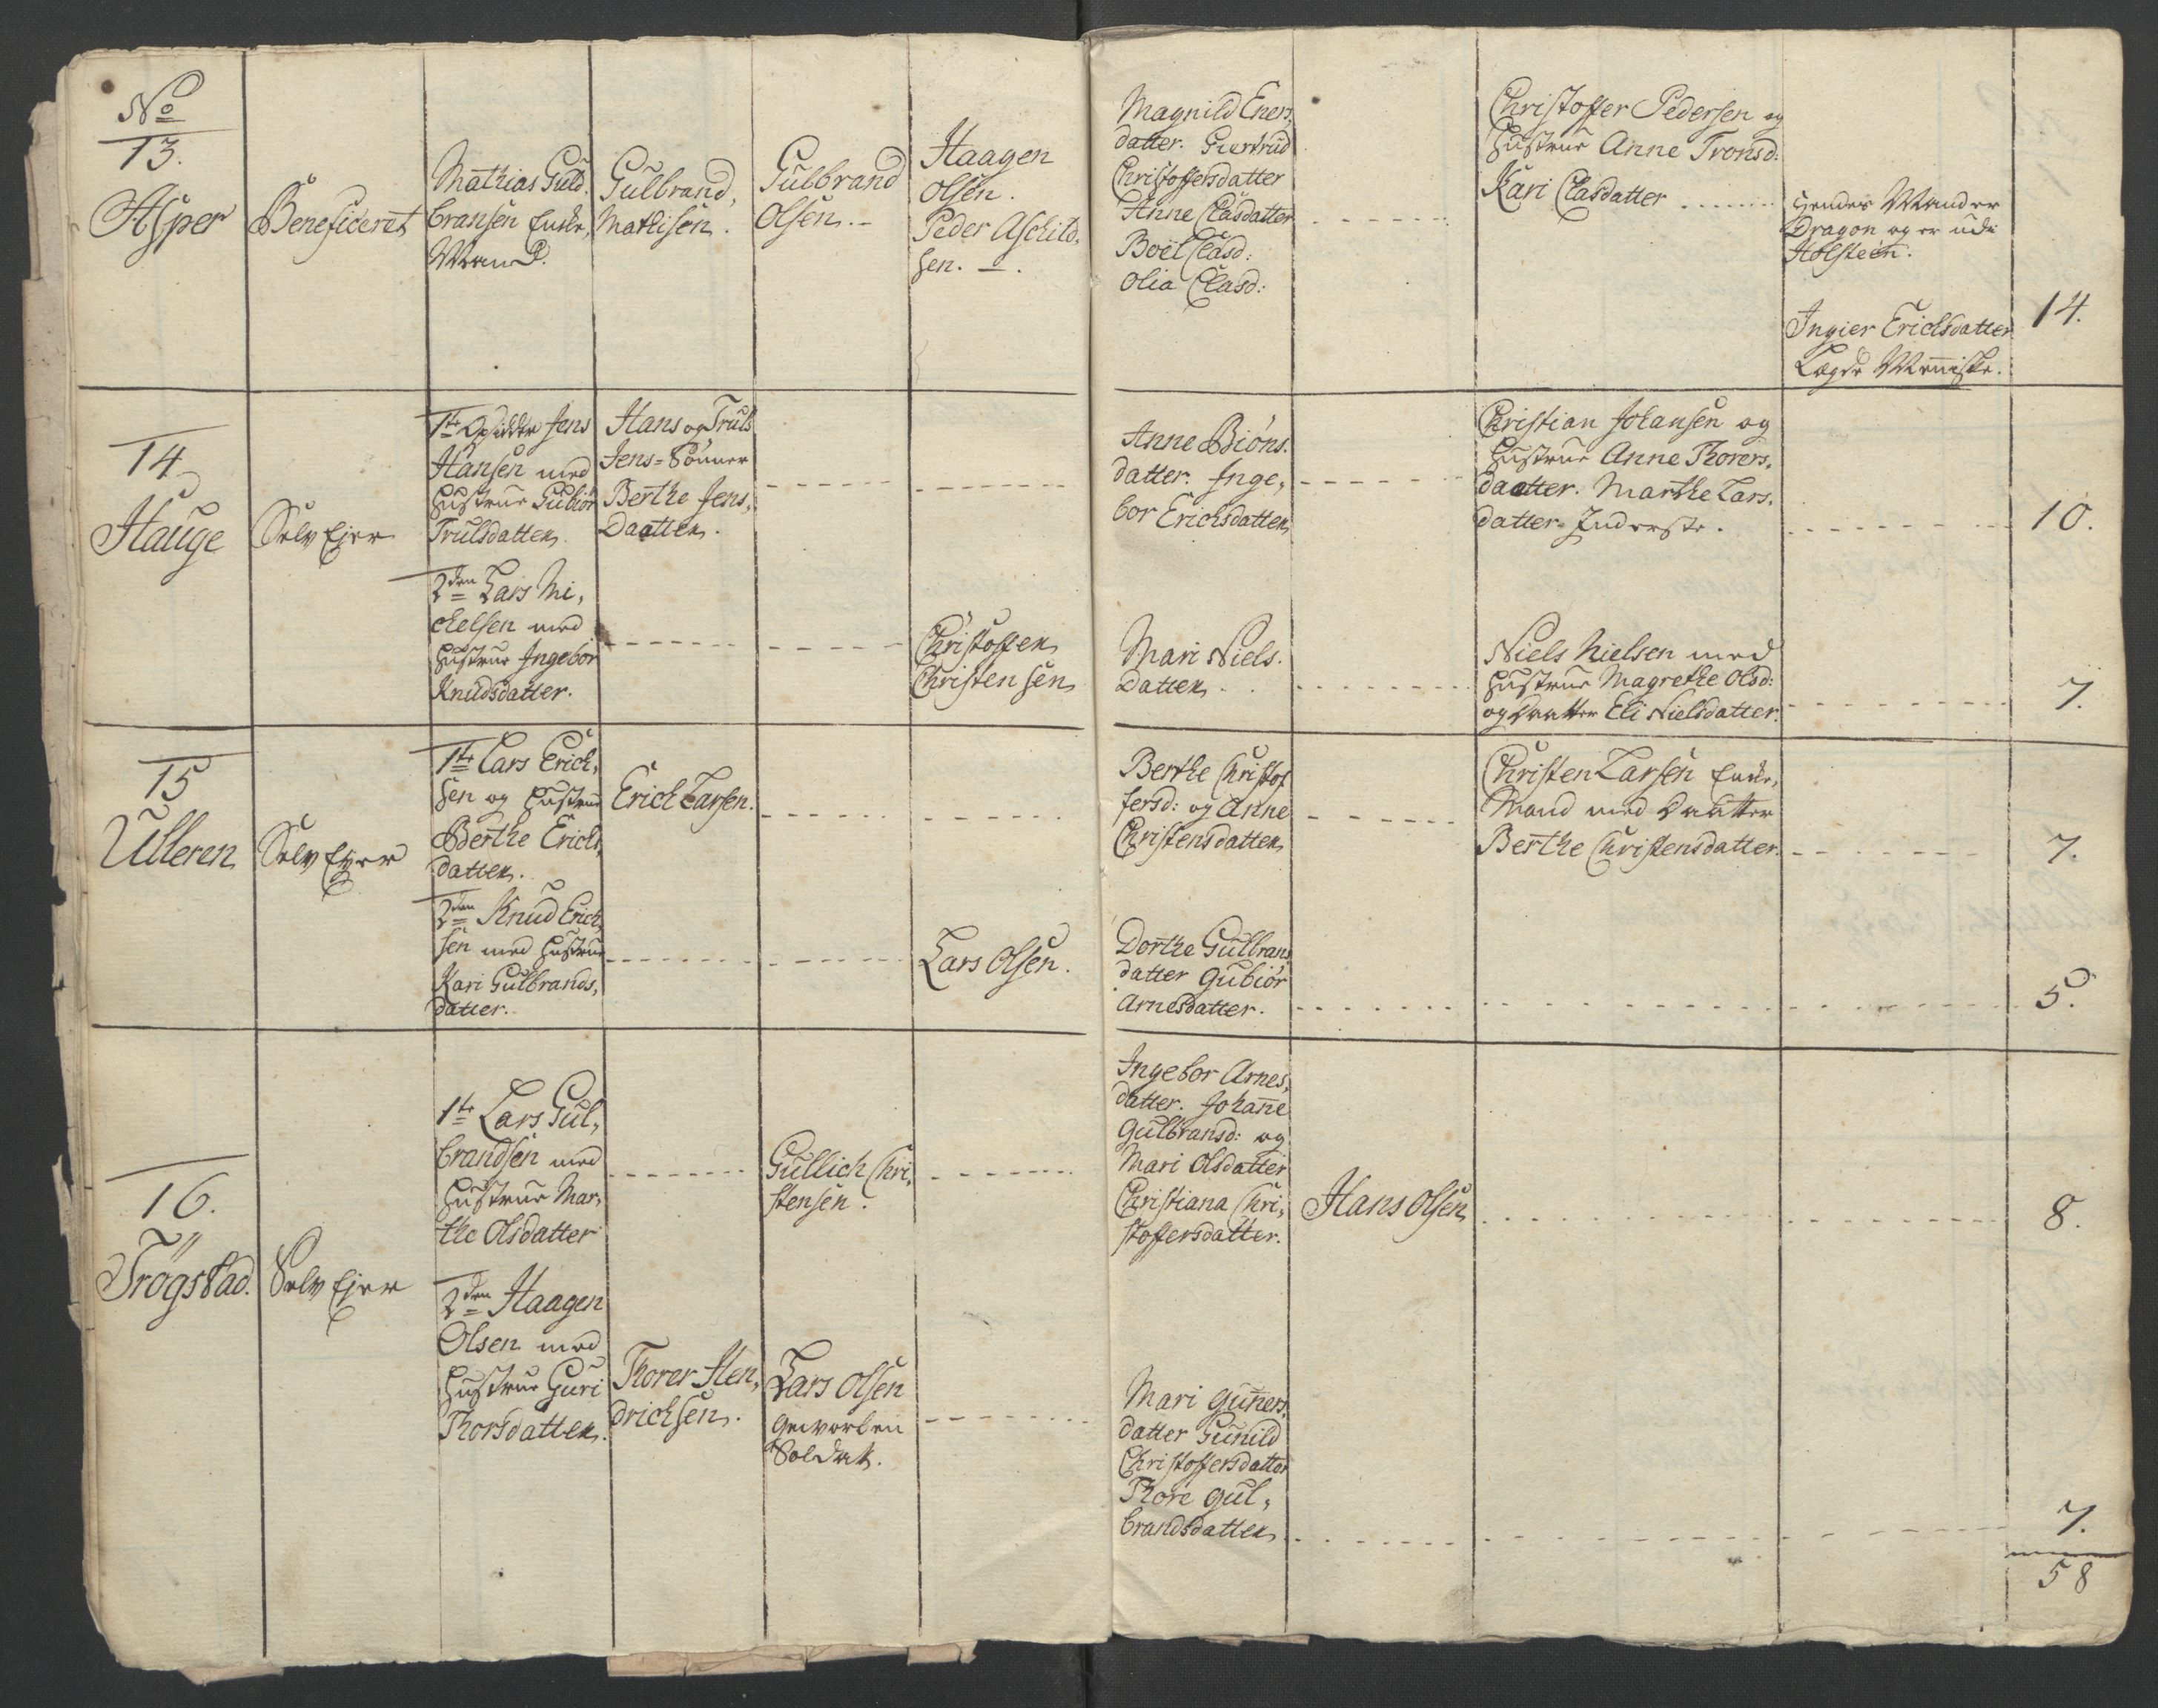 No
13.
Asper
Beneficeret
Mathias Guld-
bransen Enke,
Mand.
Gulbrand,
Mathisen.
Gulbrand
Olsen.
Haagen
Olsen.
Peder Aschild,
sen.
Magnild Eners,
datter. Giertrud
Christoffersdatter
Anne Clasdatter
Boel Clasd:
Olia Clasd:
Christoffer Pedersen og
Hustrue Anne Tronsd:
Kari Clasdatter
Hendes Mand er
Dragon og er udi
Holsteen.
Ingier Erichsdatter
Lægde Menniske.
14.
14
Hauge
Selv Ejer
1te Opsidder Jens
Hansen med
Hustrue Gubiør
Trulsdatter.
Hans og Truls
Jens=Sønner
Berthe Jens,
Daatter.
Anne Biøns.
datter. Inge,
bor Erichsdatter
Christian Johansen og
Hustrue Anne Thorers,
daatter. Marthe Lars,
datter Inderste.
10.
2den Lars Mi,
chelsen med
Hustrue Ingebor
Knudsdatter.
Christoffer
Christensen
Mari Niels.
Datter.
Niels Nielsen med
Hustrue Magrethe Olsd:
og Daatter Eli Nielsdatter.
7.
15
Ulleren
Selv Ejer
1te Lars Erich,
sen og Hustrue
Berthe Erichs,
datter.
Erich Larsen.
Berthe Christof
fersd: og Anne
Christensdatter
Christen Larsen Enke,
Mand med Daatter
Berthe Christensdatter.
7.
2den Knud Erich,
sen med Hustrue
Kari Gulbrands,
datter.
Lars Olsen.
Dorthe Gulbrans
datter Gubiør
Arnesdatter.
5.
16.
Trøgstad.
Selv Ejer
1te Lars Gul,
brandsen med
Hustrue Mar,
the Olsdatter
Gullich Chri,
stensen.
Ingebor Arnes,
datter. Johanne
Gulbransd: og
Mari Olsdatter
Christiana Chri,
stoffersdatter.
Hans Olsen
8.
2den Haagen
Olsen med
Hustrue Guri
Thorsdatter.
Thorer Hen,
drichsen.
Lars Olsen
Gevorben
Soldat.
Mari Guners,
datter Gunild
Christoffersdatter
Thore Gul,
brandsdatter
7.
58